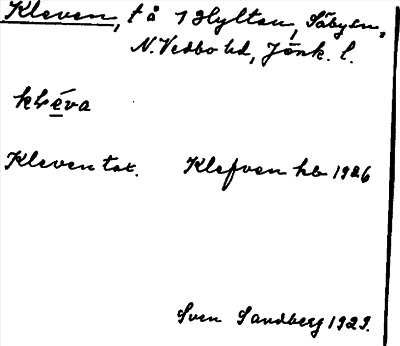 Kleven, t å 1 Hyltan, Säbysn,
N. Vedbo hd, Jönk. l.
kléva
Kleven tax. Klefven hb 1926
Sven Sandberg 1929.